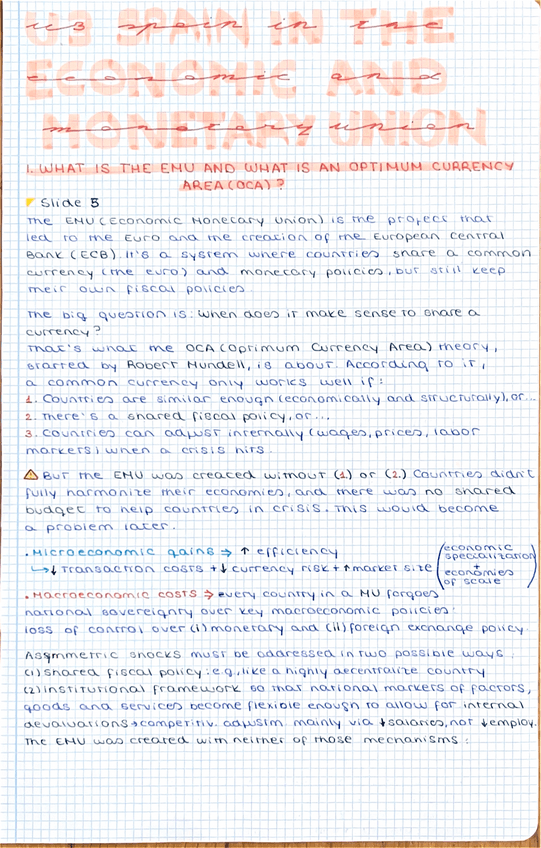 U3 SPAIN IN THE
ECONOMIC AND
MONETARY UNION
1. WHAT IS THE EMU AND WHAT IS AN OPTIMUM CURRENCY
AREA (OCA)?
Slide 5
The EMU (Economic Monetary Union) is the project that
led to the Euro and the creation of the European Central
Bank (ECB). It's a system where countries share a common
currency (the euro) and monetary policies, but still keep
their own fiscal policies.
The big question is: when does it make sense to share a
currency?
That's what the OCA (Optimum Currency Area) theory,
started by Robert Mundell, is about. According to it,
a common currency only works well if:
1. Countries are similar enough (economically and structurally), or...
2. There's a shared fiscal policy, or...
3. Countries can adjust internally (wages, prices, labor
markets) when a crisis hits.
⚠ But the EMU was created without (1.) or (2.) Countries didn't
fully harmonize their economies, and there was no shared
budget to help countries in crisis. This would become
a problem later.
· Microeconomic gains → ↑ efficiency
↳ ↓ transaction costs + ↓ currency risk + ↑ market size (economic specialization + economies of scale)
· Macroeconomic costs → every country in a MU forgoes
national sovereignty over key macroeconomic policies:
loss of control over (i) monetary and (ii) foreign exchange policy.
Asymmetric shocks must be addressed in two possible ways.
(1) shared fiscal policy: e.g, like a highly decentralize country
(2) institutional framework so that national markets of factors,
goods and services become flexible enough to allow for internal
devaluations → competitiv. adjustm. mainly via ↓ salaries, not ↓ employ.
The EMU was created with neither of those mechanisms: